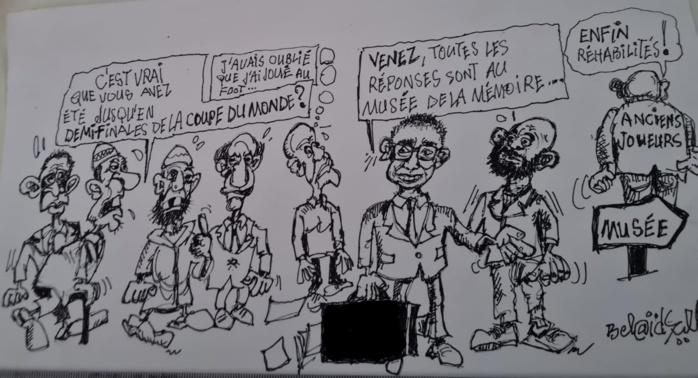 C'EST VRAI
QUE VOUS AVEZ
ÉTÉ JUSQU'EN
DEMI FINALES DE LA COUPE DU MONDE?
J'AVAIS OUBLIÉ
QUE J'AI JOUÉ AU
FOOT...
VENEZ, TOUTES LES
RÉPONSES SONT AU
MUSÉE DE LA MÉMOIRE...
ENFIN
RÉHABILITÉS!
ANCIENS
JOUEURS
MUSÉE